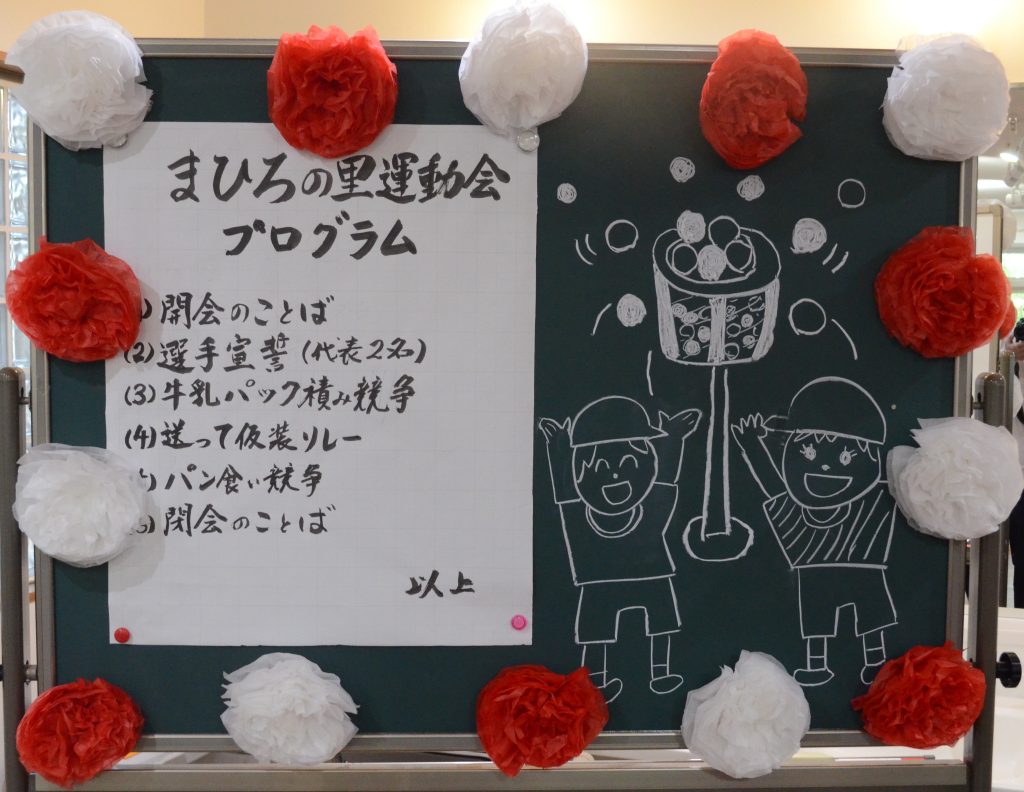 まひろの里運動会
プログラム
) 開会のことば
(2) 選手宣誓 (代表2名)
(3) 牛乳パック積み競争
(4) 送って仮装リレー
) パン食い競争
) 閉会のことば
以上